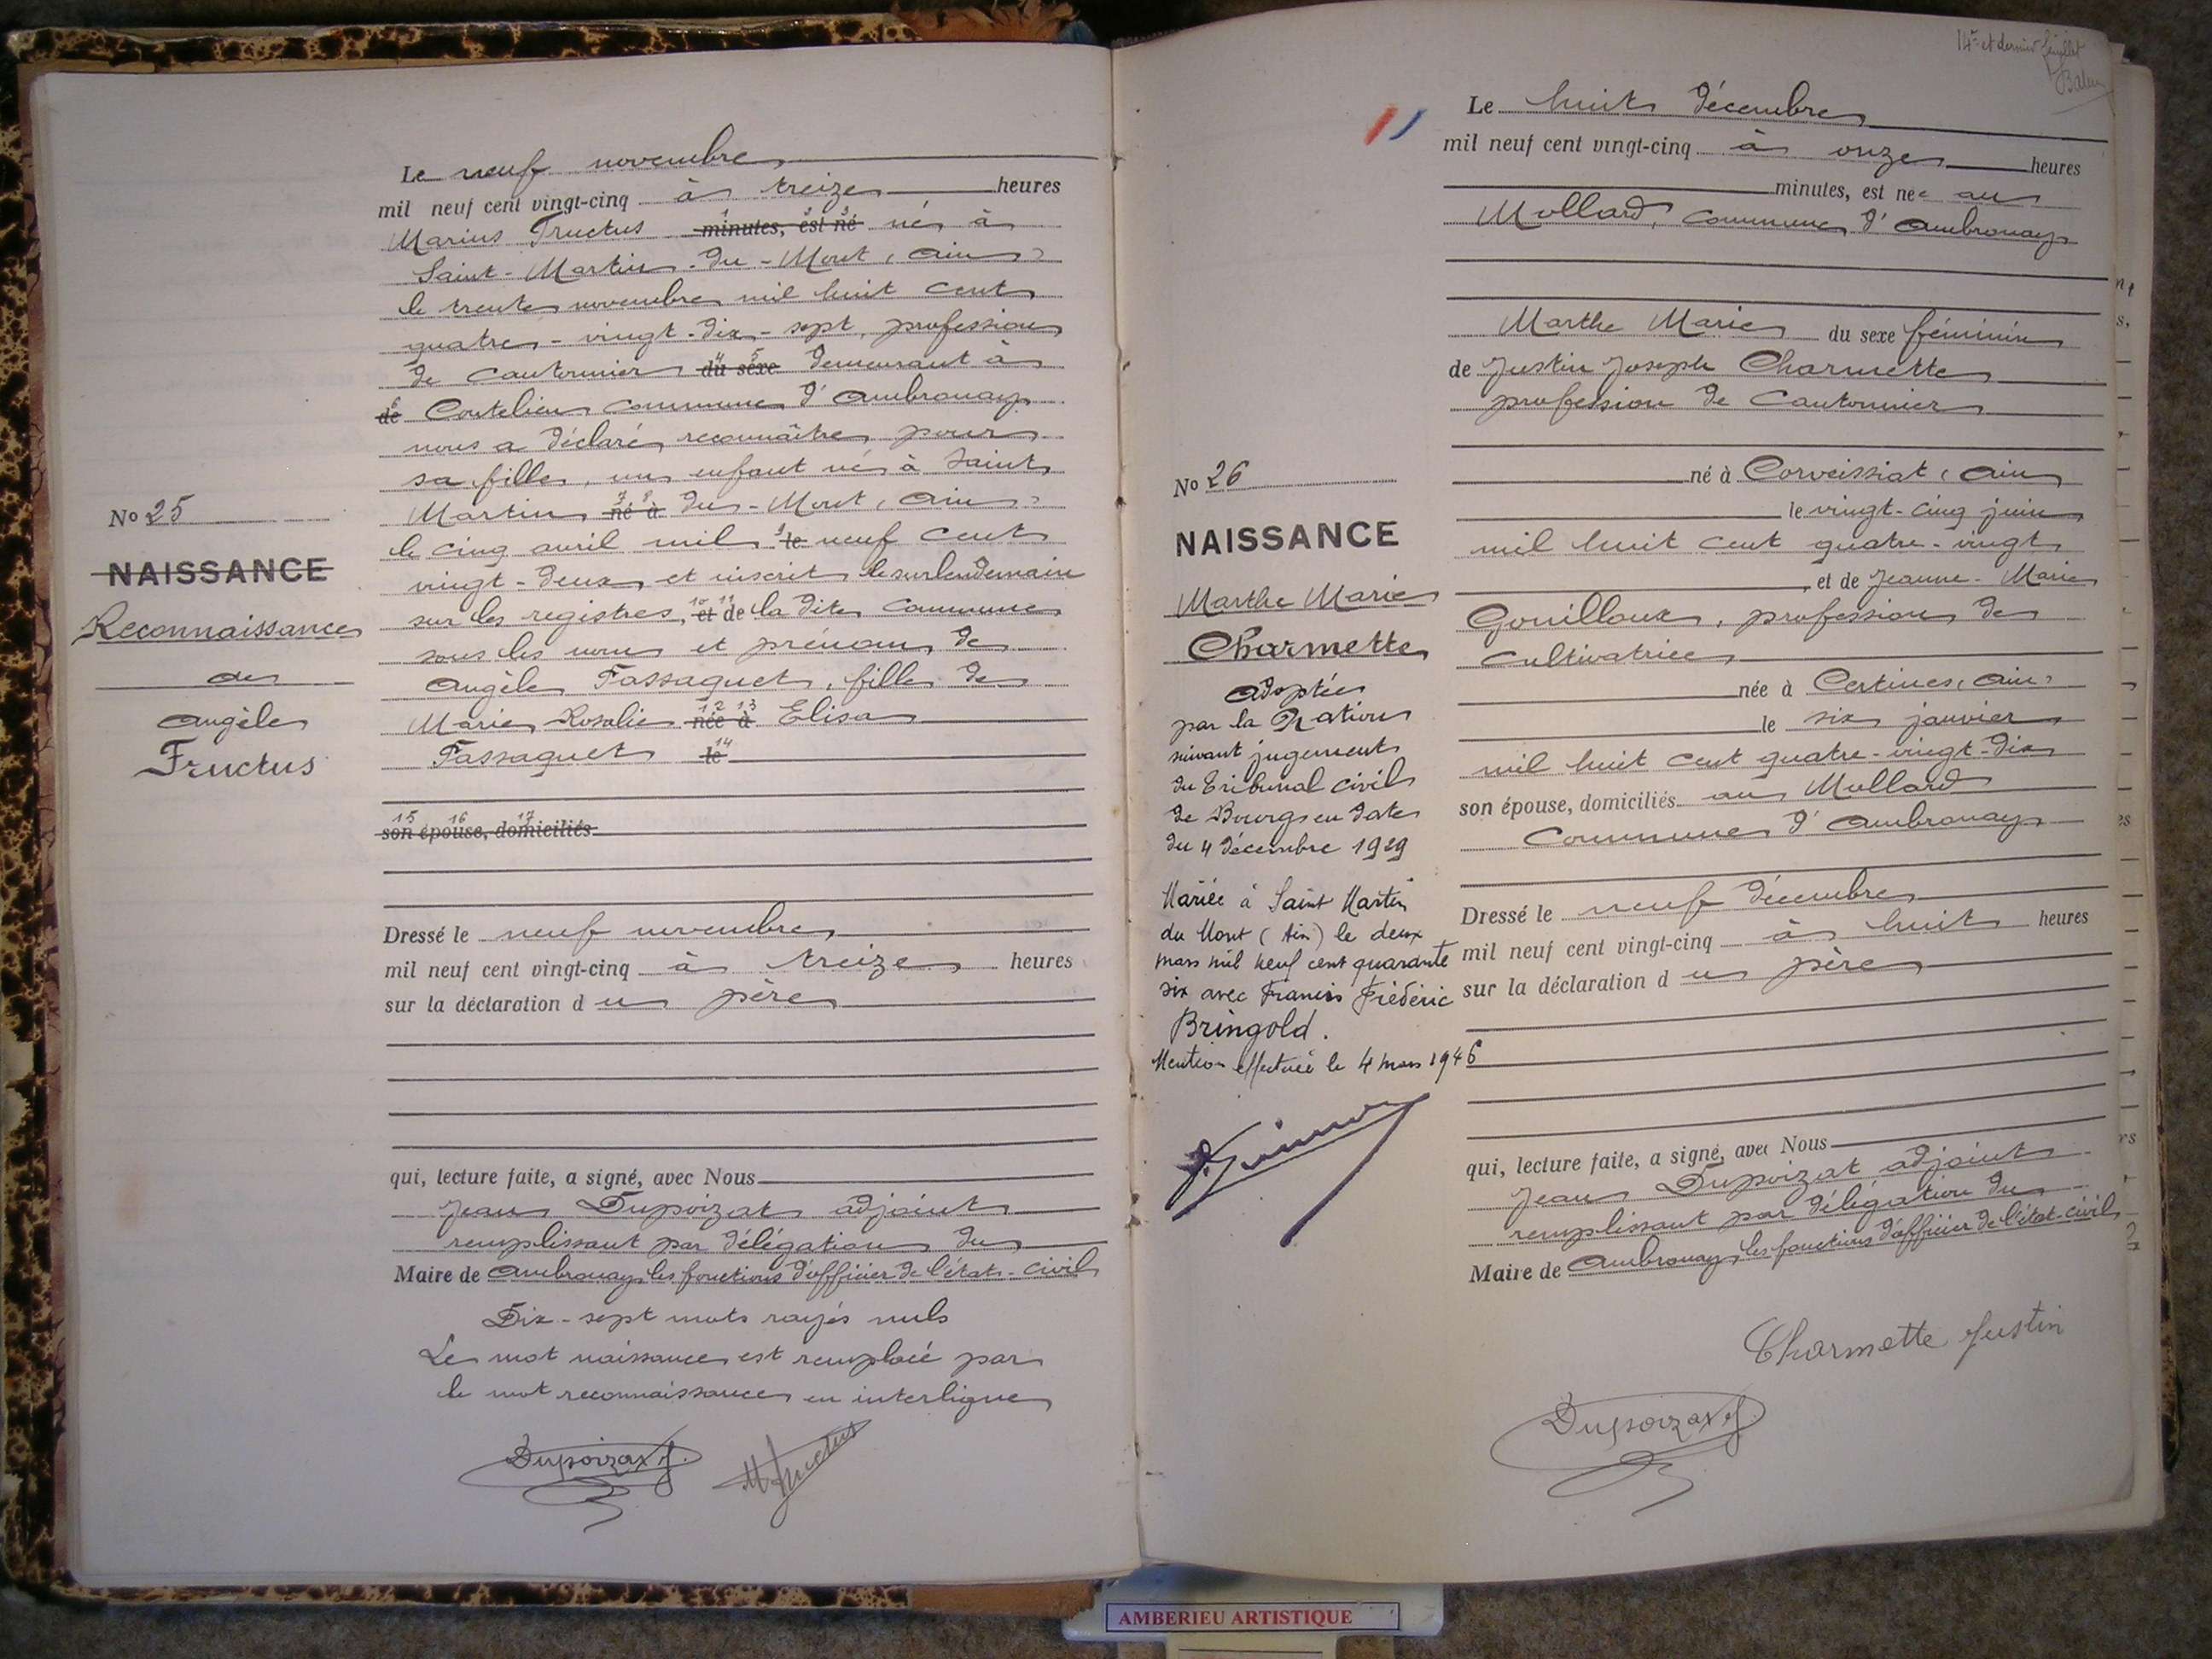 No 25
NAISSANCE
Reconnaissance
de
Angèle
Fructus
Le neuf novembre
mil neuf cent vingt-cinq à treize heures
Marius Fructus minutes, est né né à
Saint-Martin-du-Mont (Ain)
le trente novembre mil huit cent
quatre-vingt-dix-sept, profession
de cantonnier du sexe demeurant à
de Coutelieu commune d'Ambronay
nous a déclaré reconnaître pour
sa fille, un enfant né à Saint
Martin né à du-Mont (Ain)
le cinq avril mil le neuf cent
vingt-deux et inscrit le surlendemain
sur les registres, et de la dite commune
sous les nom et prénom de
Angèle Passaquet, fille de
Marie Rosalie née à Elisa
Passaquet le
son épouse, domiciliés
Dressé le neuf novembre
mil neuf cent vingt-cinq à treize heures
sur la déclaration du père
qui, lecture faite, a signé, avec Nous
Jean Dupoizat adjoint
remplissant par délégation du
Maire de Ambronay les fonctions d'officier de l'état-civil
Dix-sept mots rayés nuls
Le mot naissance est remplacé par
le mot reconnaissance en interligne
Dupoizat J.
M Fructus
14e et dernier feuillet
No 26
NAISSANCE
Marthe Marie
Charmette
Adoptée
par la Nation
suivant jugement
du Tribunal civil
de Bourg en date
du 4 décembre 1929
Mariée à Saint Martin
du Mont (Ain) le deux
mars mil neuf cent quarante
six avec Francis Frédéric
Bringold.
Mention effectuée le 4 mars 1946
Le huit décembre
mil neuf cent vingt-cinq à onze heures
minutes, est née au
Mollard, commune d'Ambronay
Marthe Marie du sexe féminin
de Justin Joseph Charmette
profession de cantonnier
né à Corveissiat (Ain)
le vingt-cinq juin
mil huit cent quatre-vingt
et de Jeanne-Marie
Gouilloux, profession de
cultivatrice
née à Certines (Ain)
le six janvier
mil huit cent quatre-vingt-dix
son épouse, domiciliés au Mollard
Commune d'Ambronay
Dressé le neuf décembre
mil neuf cent vingt-cinq à huit heures
sur la déclaration du père
qui, lecture faite, a signé, avec Nous
Jean Dupoizat adjoint
remplissant par délégation du
Maire de Ambronay les fonctions d'officier de l'état-civil
Charmette Justin
Dupoizat J
AMBERIEU ARTISTIQUE